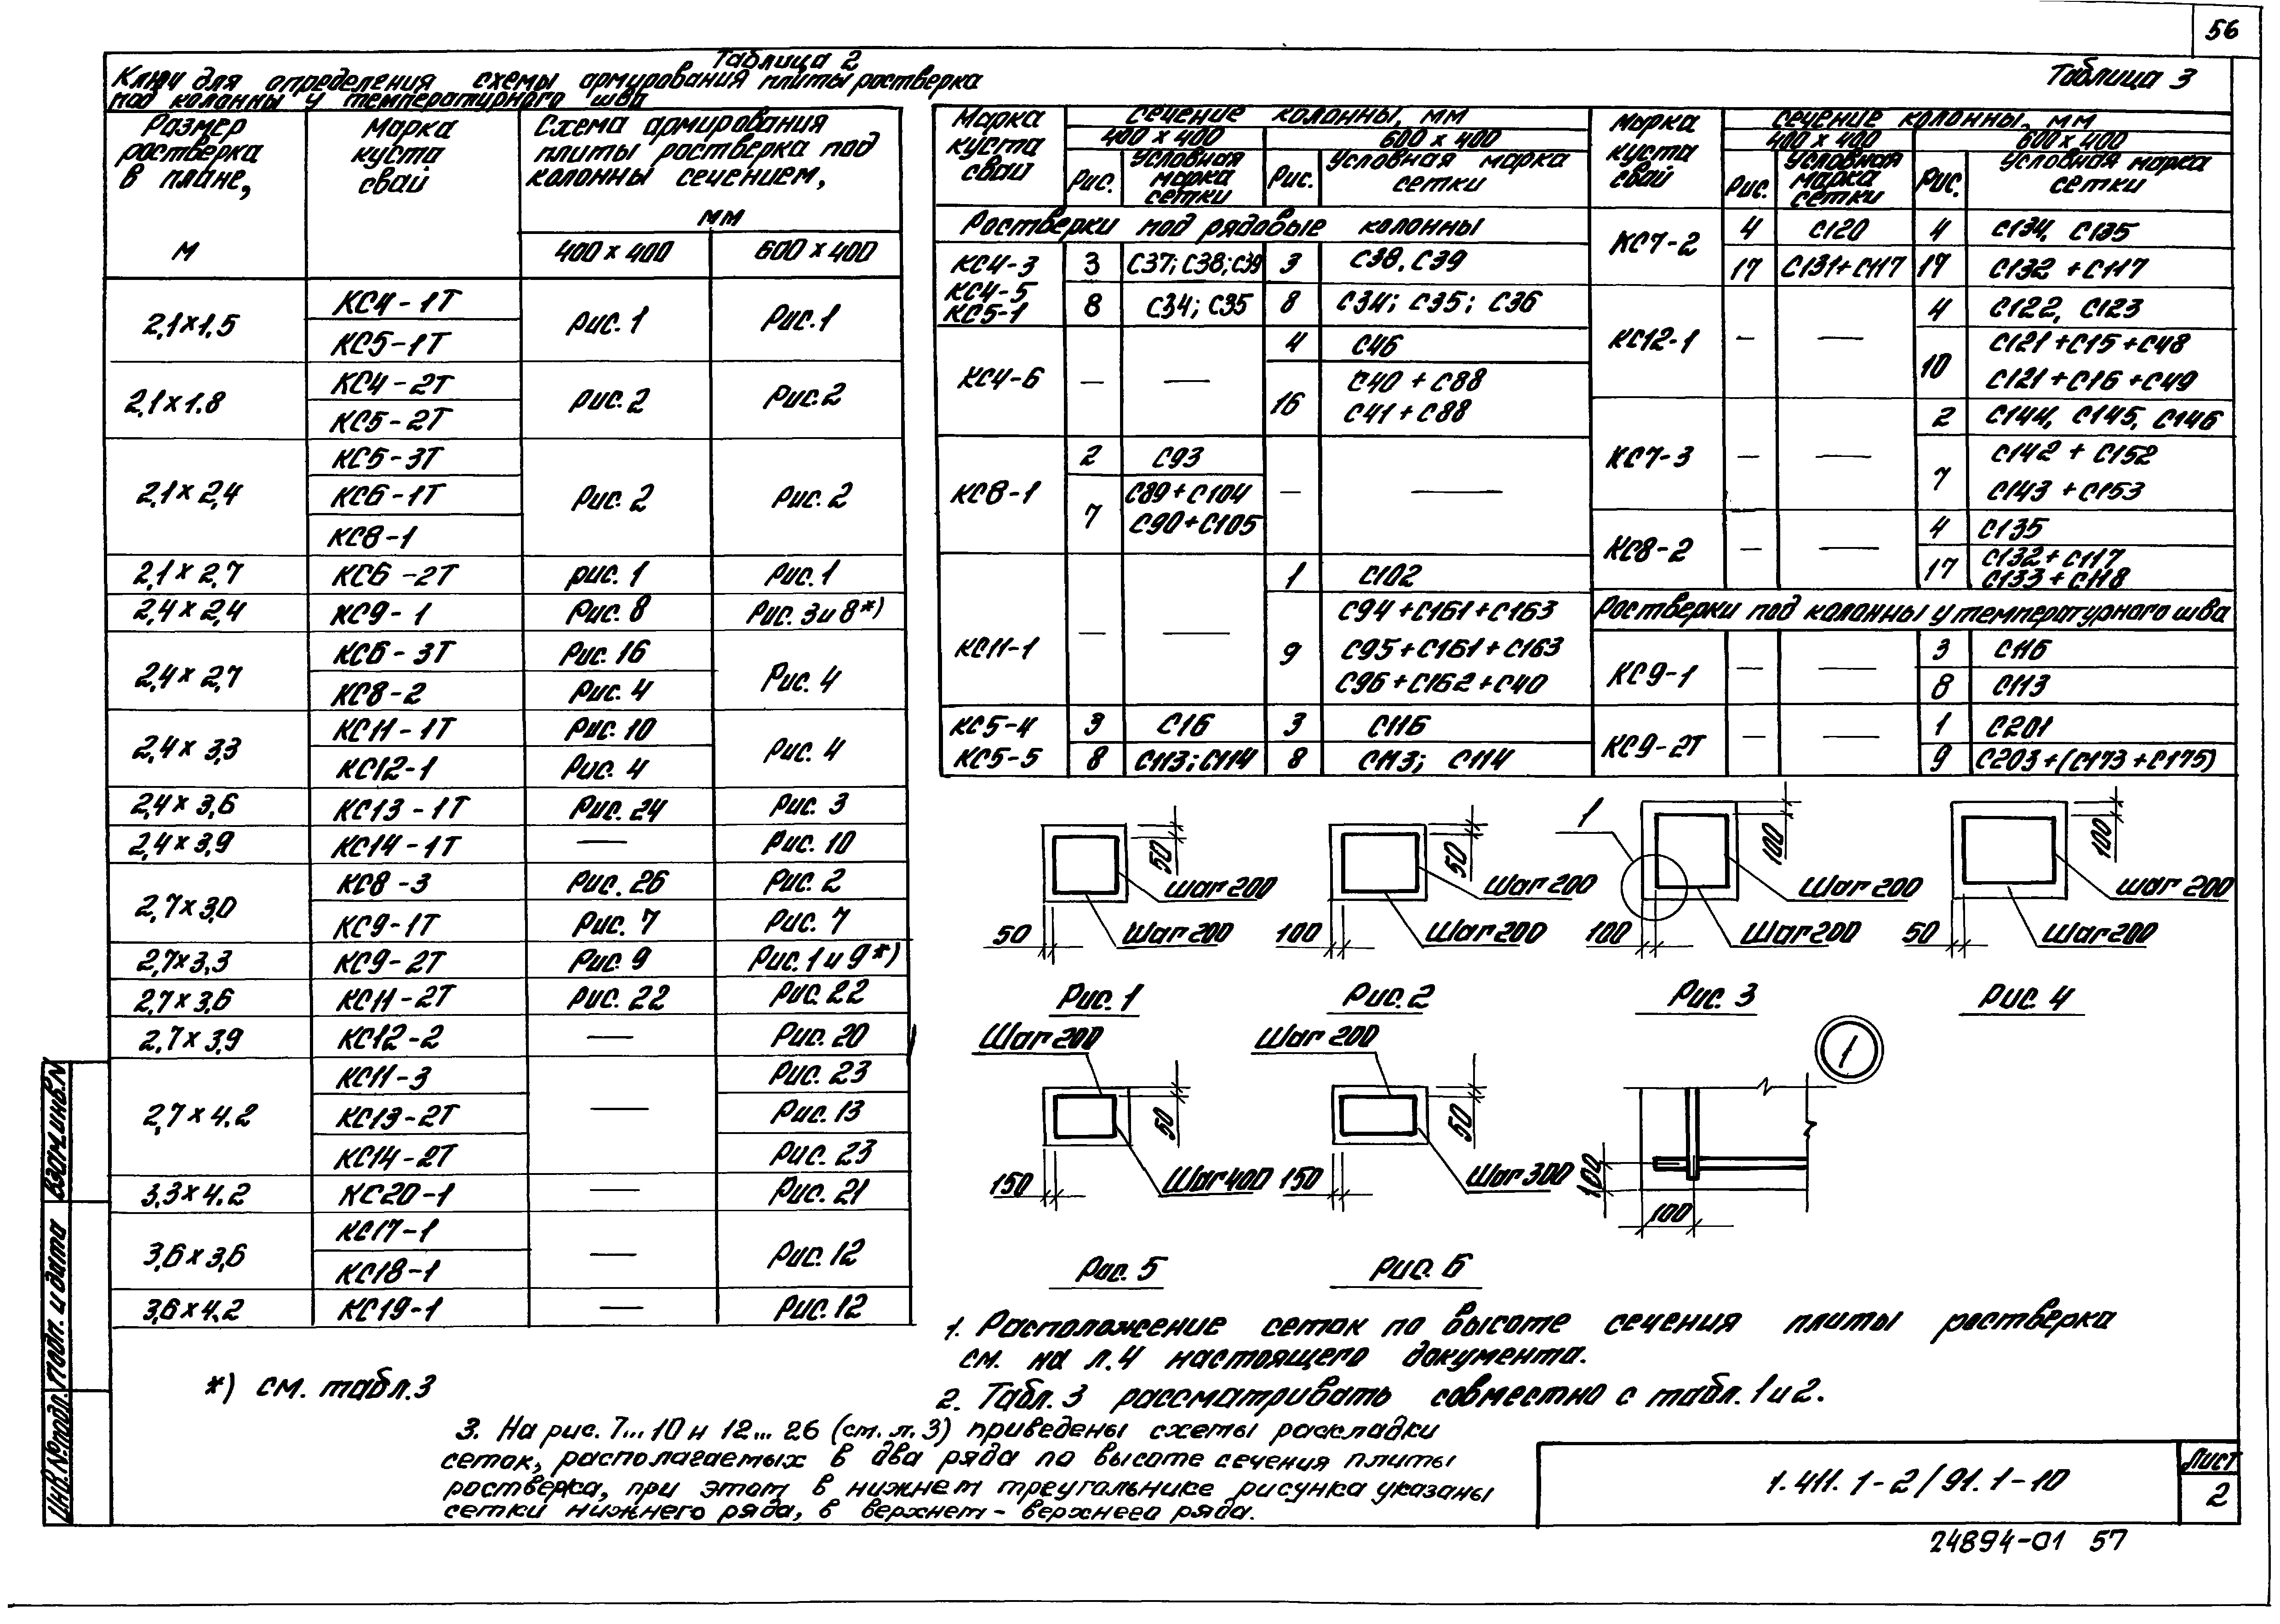 56
Таблица 2
Ключ для определения схемы армирования плиты ростверка
под колонны у температурного шва
Размер ростверка в плане, м | Марка куста свай | Схема армирования плиты ростверка под колонны сечением, мм
400 х 400 | 600 х 400
2,1х1,5 | КС4-1Т | Рис. 1 | Рис. 1
КС5-1Т
2,1х1.8 | КС4-2Т | Рис. 2 | Рис. 2
КС5-2Т
2,1х 2,4 | КС5-3Т | Рис. 2 | Рис. 2
КС6-1Т
КС8-1
2,1х 2,7 | КС6-2Т | рис. 1 | Рис. 1
2,4х 2,4 | КС9-1 | Рис. 8 | Рис. 3 и 8*)
2,4х 2,7 | КС6-3Т | Рис. 16 | Рис. 4
КС8-2 | Рис. 4
2,4х 3,3 | КС11-1Т | Рис. 10 | Рис. 4
КС12-1 | Рис. 4
2,4х 3,6 | КС13-1Т | Рис. 24 | Рис. 3
2,4х 3,9 | КС14-1Т | — | Рис. 10
2,7х3,0 | КС8-3 | Рис. 26 | Рис. 2
КС9-1Т | Рис. 7 | Рис. 7
2,7х3,3 | КС9-2Т | Рис. 9 | Рис. 1 и 9*)
2,7х3,6 | КС11-2Т | Рис. 22 | Рис. 22
2,7х3,9 | КС12-2 | — | Рис. 20
2,7х4.2 | КС11-3 | — | Рис. 23
КС13-2Т | Рис. 13
КС14-2Т | Рис. 23
3,3х4.2 | КС20-1 | — | Рис. 21
3,6х3,6 | КС17-1 | — | Рис. 12
КС18-1
3,6х4.2 | КС19-1 | — | Рис. 12
*) см. табл.3
Таблица 3
Марка куста свай | Сечение колонны, мм
400 х 400 | 600 х 400
Рис. | Условная марка сетки | Рис. | Условная марка сетки
Ростверки под рядовые колонны
КС4-3 | 3 | С37; С38; С39 | 3 | С38, С39
КС4-5
КС5-1 | 8 | С34; С35 | 8 | С34; С35; С36
КС4-6 | — | — | 4 | С46
16 | С40 + С88
С41 + С88
КС8-1 | 2 | С93 | — | —
7 | С89 + С104
С90 + С105
КС11-1 | — | — | 1 | С102
9 | С94 + С161 + С163
С95 + С161 + С163
С96 + С162 + С40
КС5-4 | 3 | С16 | 3 | С116
КС5-5 | 8 | С113; С114 | 8 | С113; С114
Марка куста свай | Сечение колонны, мм
400 х 400 | 600 х 400
Рис. | Условная марка сетки | Рис. | Условная марка сетки
КС7-2 | 4 | С120 | 4 | С134, С135
17 | С131+С117 | 17 | С132 + С117
КС12-1 | — | — | 4 | С122, С123
10 | С121 + С15 + С48
С121 + С16 + С49
КС7-3 | — | — | 2 | С144, С145, С146
7 | С142 + С152
С143 + С153
КС8-2 | — | — | 4 | С135
17 | С132 + С117
С133 + С118
Ростверки под колонны у температурного шва
КС9-1 | — | — | 3 | С116
8 | С113
КС9-2Т | — | — | 1 | С201
9 | С203 + (С173 + С175)
50
Шаг 200
50
Шаг 200
Рис. 1
50
Шаг 200
100
Шаг 200
Рис. 2
1
100
Шаг 200
100
Шаг 200
Рис. 3
100
шаг 200
50
Шаг 200
Рис. 4
Шаг 200
50
150
Шаг 400
Рис. 5
Шаг 200
50
150
Шаг 300
Рис. 6
1
100
100
1. Расположение сеток по высоте сечения плиты ростверка
см. на л.4 настоящего документа.
2. Табл. 3 рассматривать совместно с табл. 1 и 2.
3. На рис. 7... 10 и 12... 26 (см. л. 3) приведены схемы раскладки
сеток, располагаемых в два ряда по высоте сечения плиты
ростверка, при этом в нижнем треугольнике рисунка указаны
сетки нижнего ряда, в верхнем - верхнего ряда.
1.411.1-2/91.1-10
Лист
2
24894-01 57
Взам.инв.N
Подп. и дата
Инв.№подл.